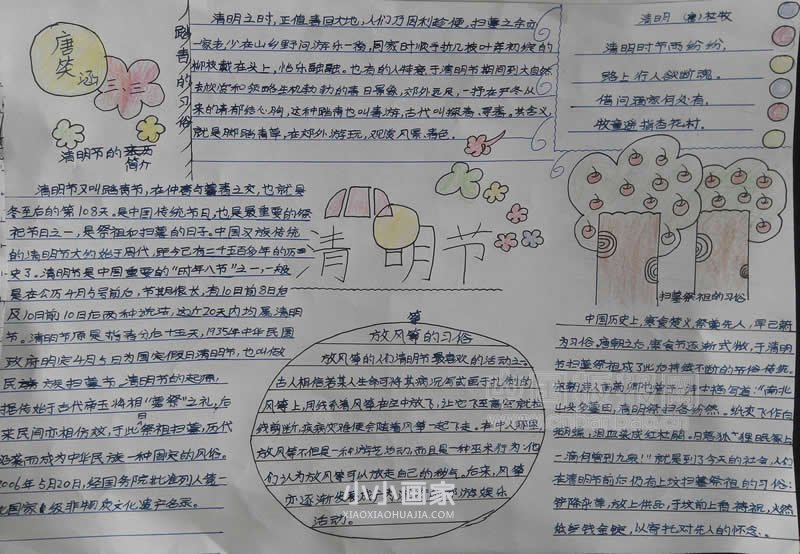 唐笑涵
三.三
踏青的习俗
清明之时,正值春回大地,人们乃因利趁便,扫墓之余亦
一家老少在山乡野间游乐一番,回家时顺手折几枝叶芽初绽的
柳枝戴在头上,怡乐融融。也有的人特意于清明节期间到大自然
去欣赏和领略生机勃勃的春日景象,郊外远足,一抒在严冬以
来的清郁结心胸,这种踏青也叫春游,古代叫探春、寻春。其含义,
就是脚踏青草,在郊外游玩,观赏风景、春色。
清明 (唐)杜牧
清明时节雨纷纷,
路上行人欲断魂。
借问酒家何处有,
牧童遥指杏花村。
清明节的
简介
清明节又叫踏青节,在仲春与暮春之交,也就是
冬至后的第108天。是中国传统节日,也是最重要的祭
祀节日之一,是祭祖和扫墓的日子。中国汉族传统
的清明节大约始于周代,距今已有二千五百多年的历
史了。清明节是中国重要的“时年八节”之一,一般
是在公历4月5号前后,节期很长,有10日前8日后
及10日前10日后两种说法,这近20天内均属清明
节。清明节原是指春分后十五天,1935年中华民国
政府明定4月5日为国定假日清明节,也叫做
民族扫墓节。清明节的起源,
据传始于古代帝王将相“墓祭”之礼,后
来民间亦相仿效,于此日祭祖扫墓,历代
沿袭而成为中华民族一种固定的风俗。
2006年5月20日,经国务院批准列入第一
批国家级非物质文化遗产名录。
清明节
筝
放风筝的习俗
放风筝的人们清明节最喜欢的活动之一
古人相信若某人生命可将其病况写或画于扎制的
风筝上,用线系着风筝在空中放飞,让它飞至高空就把
线剪断,疾病灾难便会随着风筝一起飞走。在中人眼里
放风筝不但是一种游艺活动,而且是一种巫术行为:他
们认为放风筝可以放走自己的秽气。后来,风筝
亦逐渐发展游娱乐
活动。
扫墓祭祖的习俗
中国历史上,寒食禁火,祭奠先人,早已蔚
为习俗。唐朝之后,寒食节逐渐式微,于清明
节扫墓祭祖成了此后持续不断的节俗传统。
宋朝诗人高菊卿也曾于诗中描写道:“南北
山头多墓田,清明祭扫各纷然。纸灰飞作白
蝴蝶,泪血染成红杜鹃。日暮狐狸眠冢上
一滴何曾到九泉!”就是到了今天的社会,人们
在清明节前后仍有上坟扫墓祭祖的习俗:
铲除杂草,放上供品,于坟前上香祷祝,火然
纸钱金锭,以寄托对先人的怀念。
小小画家
XIAOXIAOHUAJIA.COM